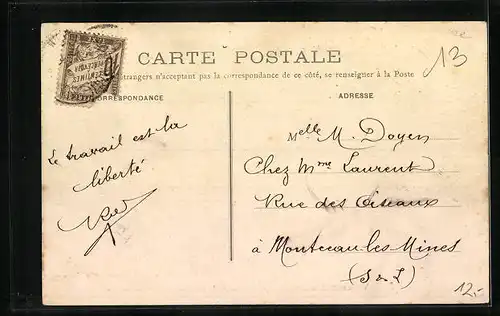 CARTE POSTALE
13
étrangers n'acceptant pas la correspondance de ce côté, se renseigner à la Poste
CORRESPONDANCE
ADRESSE
Le travail est la
liberté
Melle M. Doyen
Chez Mme Laurent
Rue des Oiseaux
à Montceau-les-Mines
(S & L)
12.-